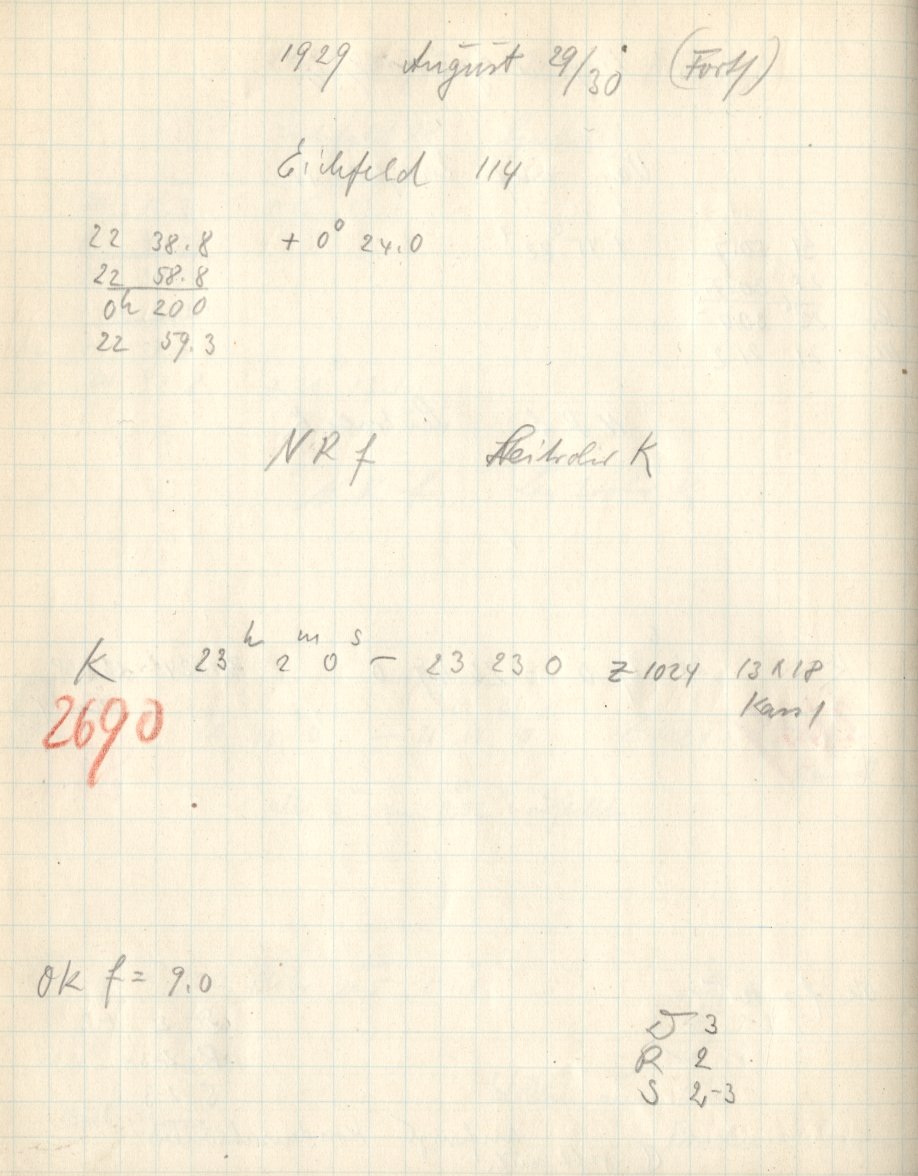 1929 August 29/30 (Forts)
Eichfeld 114
22 38.8 + 0° 24.0
22 58.8
0h 20 0
22 59.3
N R f K
K 23h 2m 0s – 23 23 0 Z 1024 13 x 18
2690
OK f = 9.0
3
R 2
S 2-3